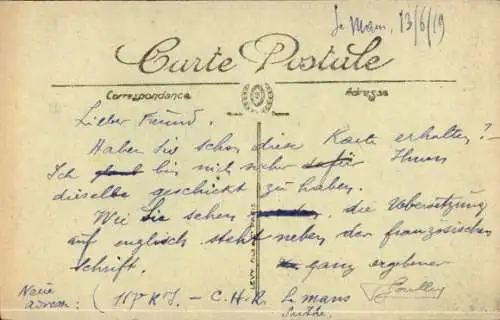 Le Mans, 13/6/19
Carte Postale
Correspondance
Adresse
Lieber Freund.
Haben Sie schon diese Karte erhalten? -
Ich bin nich sicher Ihnen
dieselbe geschickt zu haben.
Wei Sie sehen die Uebersetzung
auf englisch steht neben der französischen
Schrift. ganz ergebener
Neue
adresse: - C.H.R. Le mans
Sarthe.